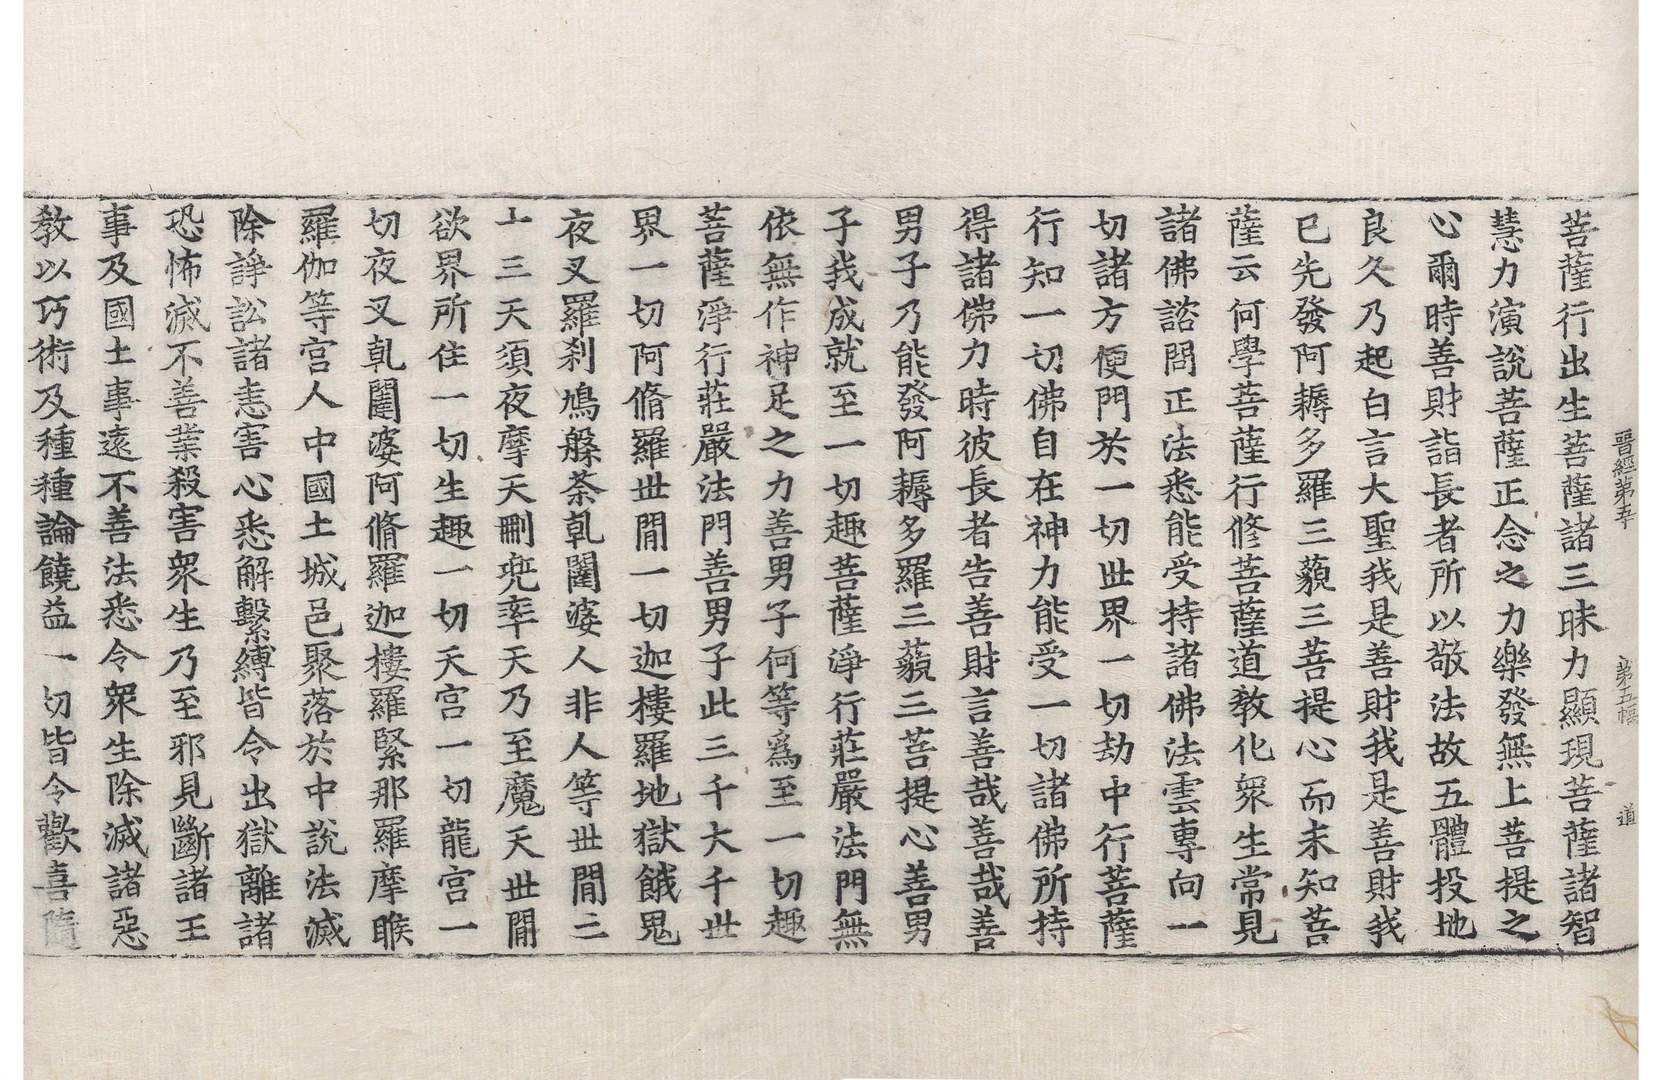 晋經第五十 第五幅 道
菩薩行出生菩薩諸三昧力顯現菩薩諸智
慧力演說菩薩正念之力樂發無上菩提之
心爾時善財詣長者所以敬法故五體投地
良久乃起白言大聖我是善財我是善財我
已先發阿耨多羅三藐三菩提心而未知菩
薩云何學菩薩行修菩薩道教化衆生常見
諸佛諮問正法悉能受持諸佛法雲專向一
切諸方便門於一切世界一切劫中行菩薩
行知一切佛自在神力能受一切諸佛所持
得諸佛力時彼長者告善財言善哉善哉善
男子乃能發阿耨多羅三藐三菩提心善男
子我成就至一切趣菩薩淨行莊嚴法門無
依無作神足之力善男子何等爲至一切趣
菩薩淨行莊嚴法門善男子此三千大千世
界一切阿脩羅世間一切迦樓羅地獄餓鬼
夜叉羅刹鳩槃荼乹闥婆人非人等世間三
十三天須夜摩天刪兜率天乃至魔天世間
欲界所住一切生趣一切天宮一切龍宮一
切夜叉乹闥婆阿脩羅迦樓羅緊那羅摩睺
羅伽等宮人中國土城邑聚落於中說法滅
除諍訟諸恚害心悉解繫縛皆令出獄離諸
恐怖滅不善業殺害衆生乃至邪見斷諸王
事及國土事遠不善法悉令衆生除滅諸惡
敎以巧術及種種論饒益一切皆令歡喜隨